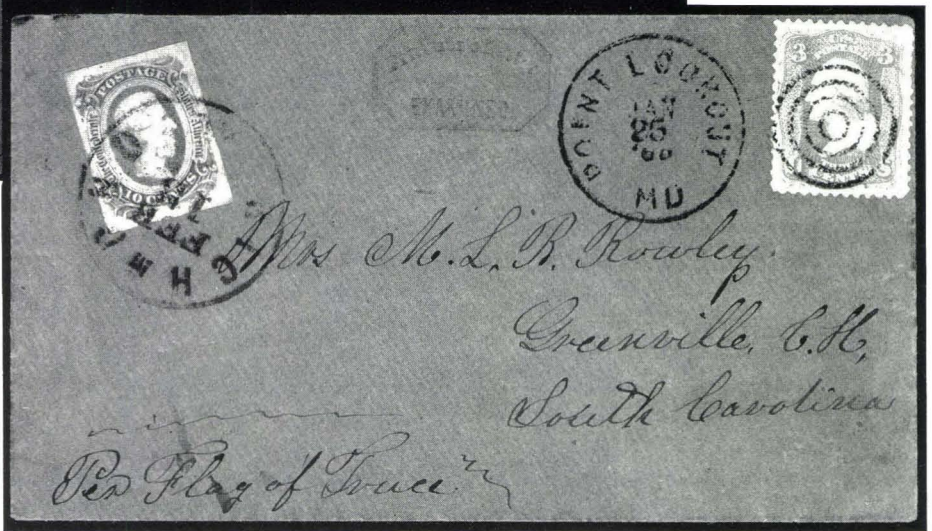 3 3
POSTAGE
TEN CENTS
POINT LOOKOUT
JAN
25
MD
FEB
Mrs M. L. R. Rowley.
Greenville, C. H,
South Carolina
Per Flag of Truce